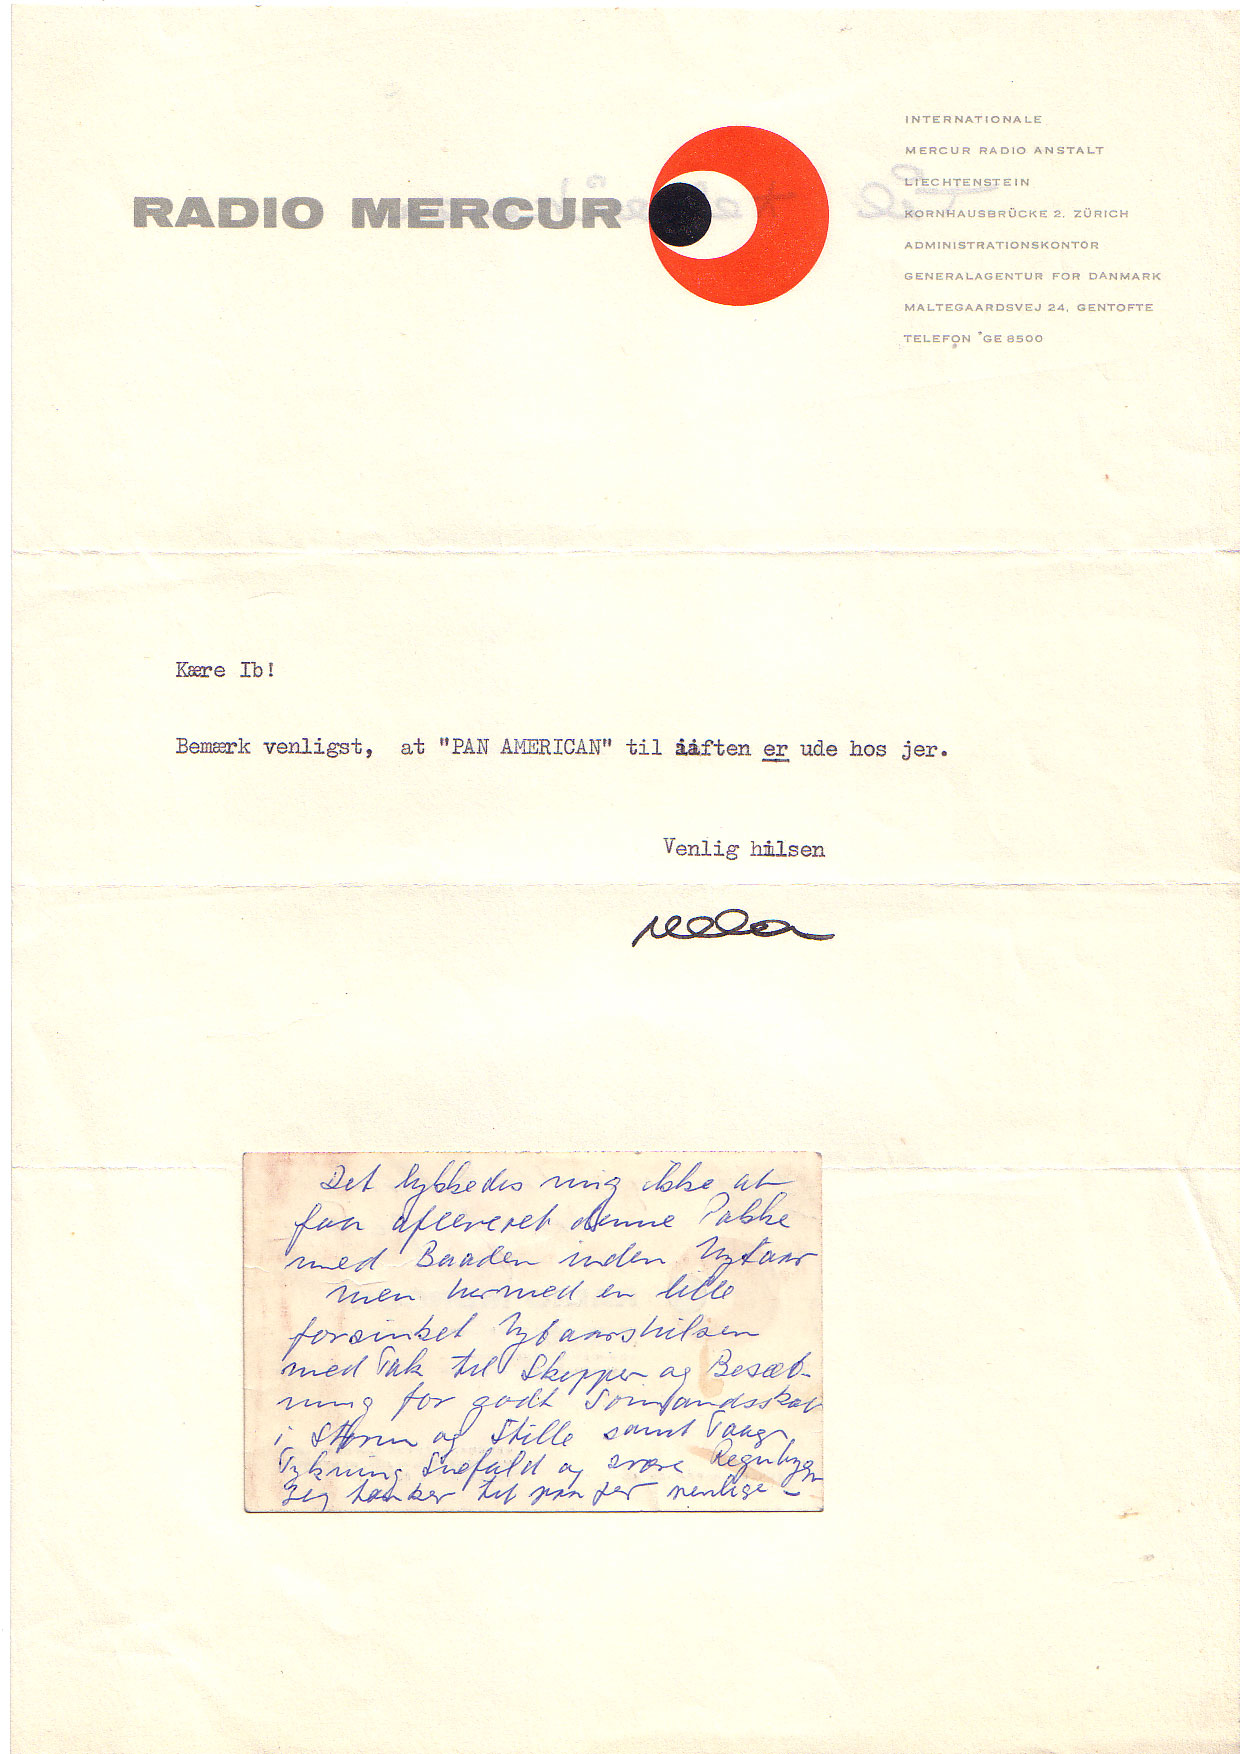 RADIO MERCUR
INTERNATIONALE
MERCUR RADIO ANSTALT
LIECHTENSTEIN
KORNHAUSBRÜCKE 2, ZÜRICH
ADMINISTRATIONSKONTOR
GENERALAGENTUR FOR DANMARK
MALTEGAARDSVEJ 24, GENTOFTE
TELEFON *GE 8500
Kære Ib!
Bemærk venligst, at "PAN AMERICAN" til ååften er ude hos jer.
Venlig hilsen
Det lykkedes mig ikke at
faa afleveret denne Pakke
med Baaden inden Nytaar
men hermed en lille
forsinket Nytaarshilsen
med Tak til Skipper og Besæt-
ning for godt Sømandsskab
i Storm og Stille samt Taage,
Tykning Snefald og svære Regnbyger
Jeg tænker tit paa jer venlige -